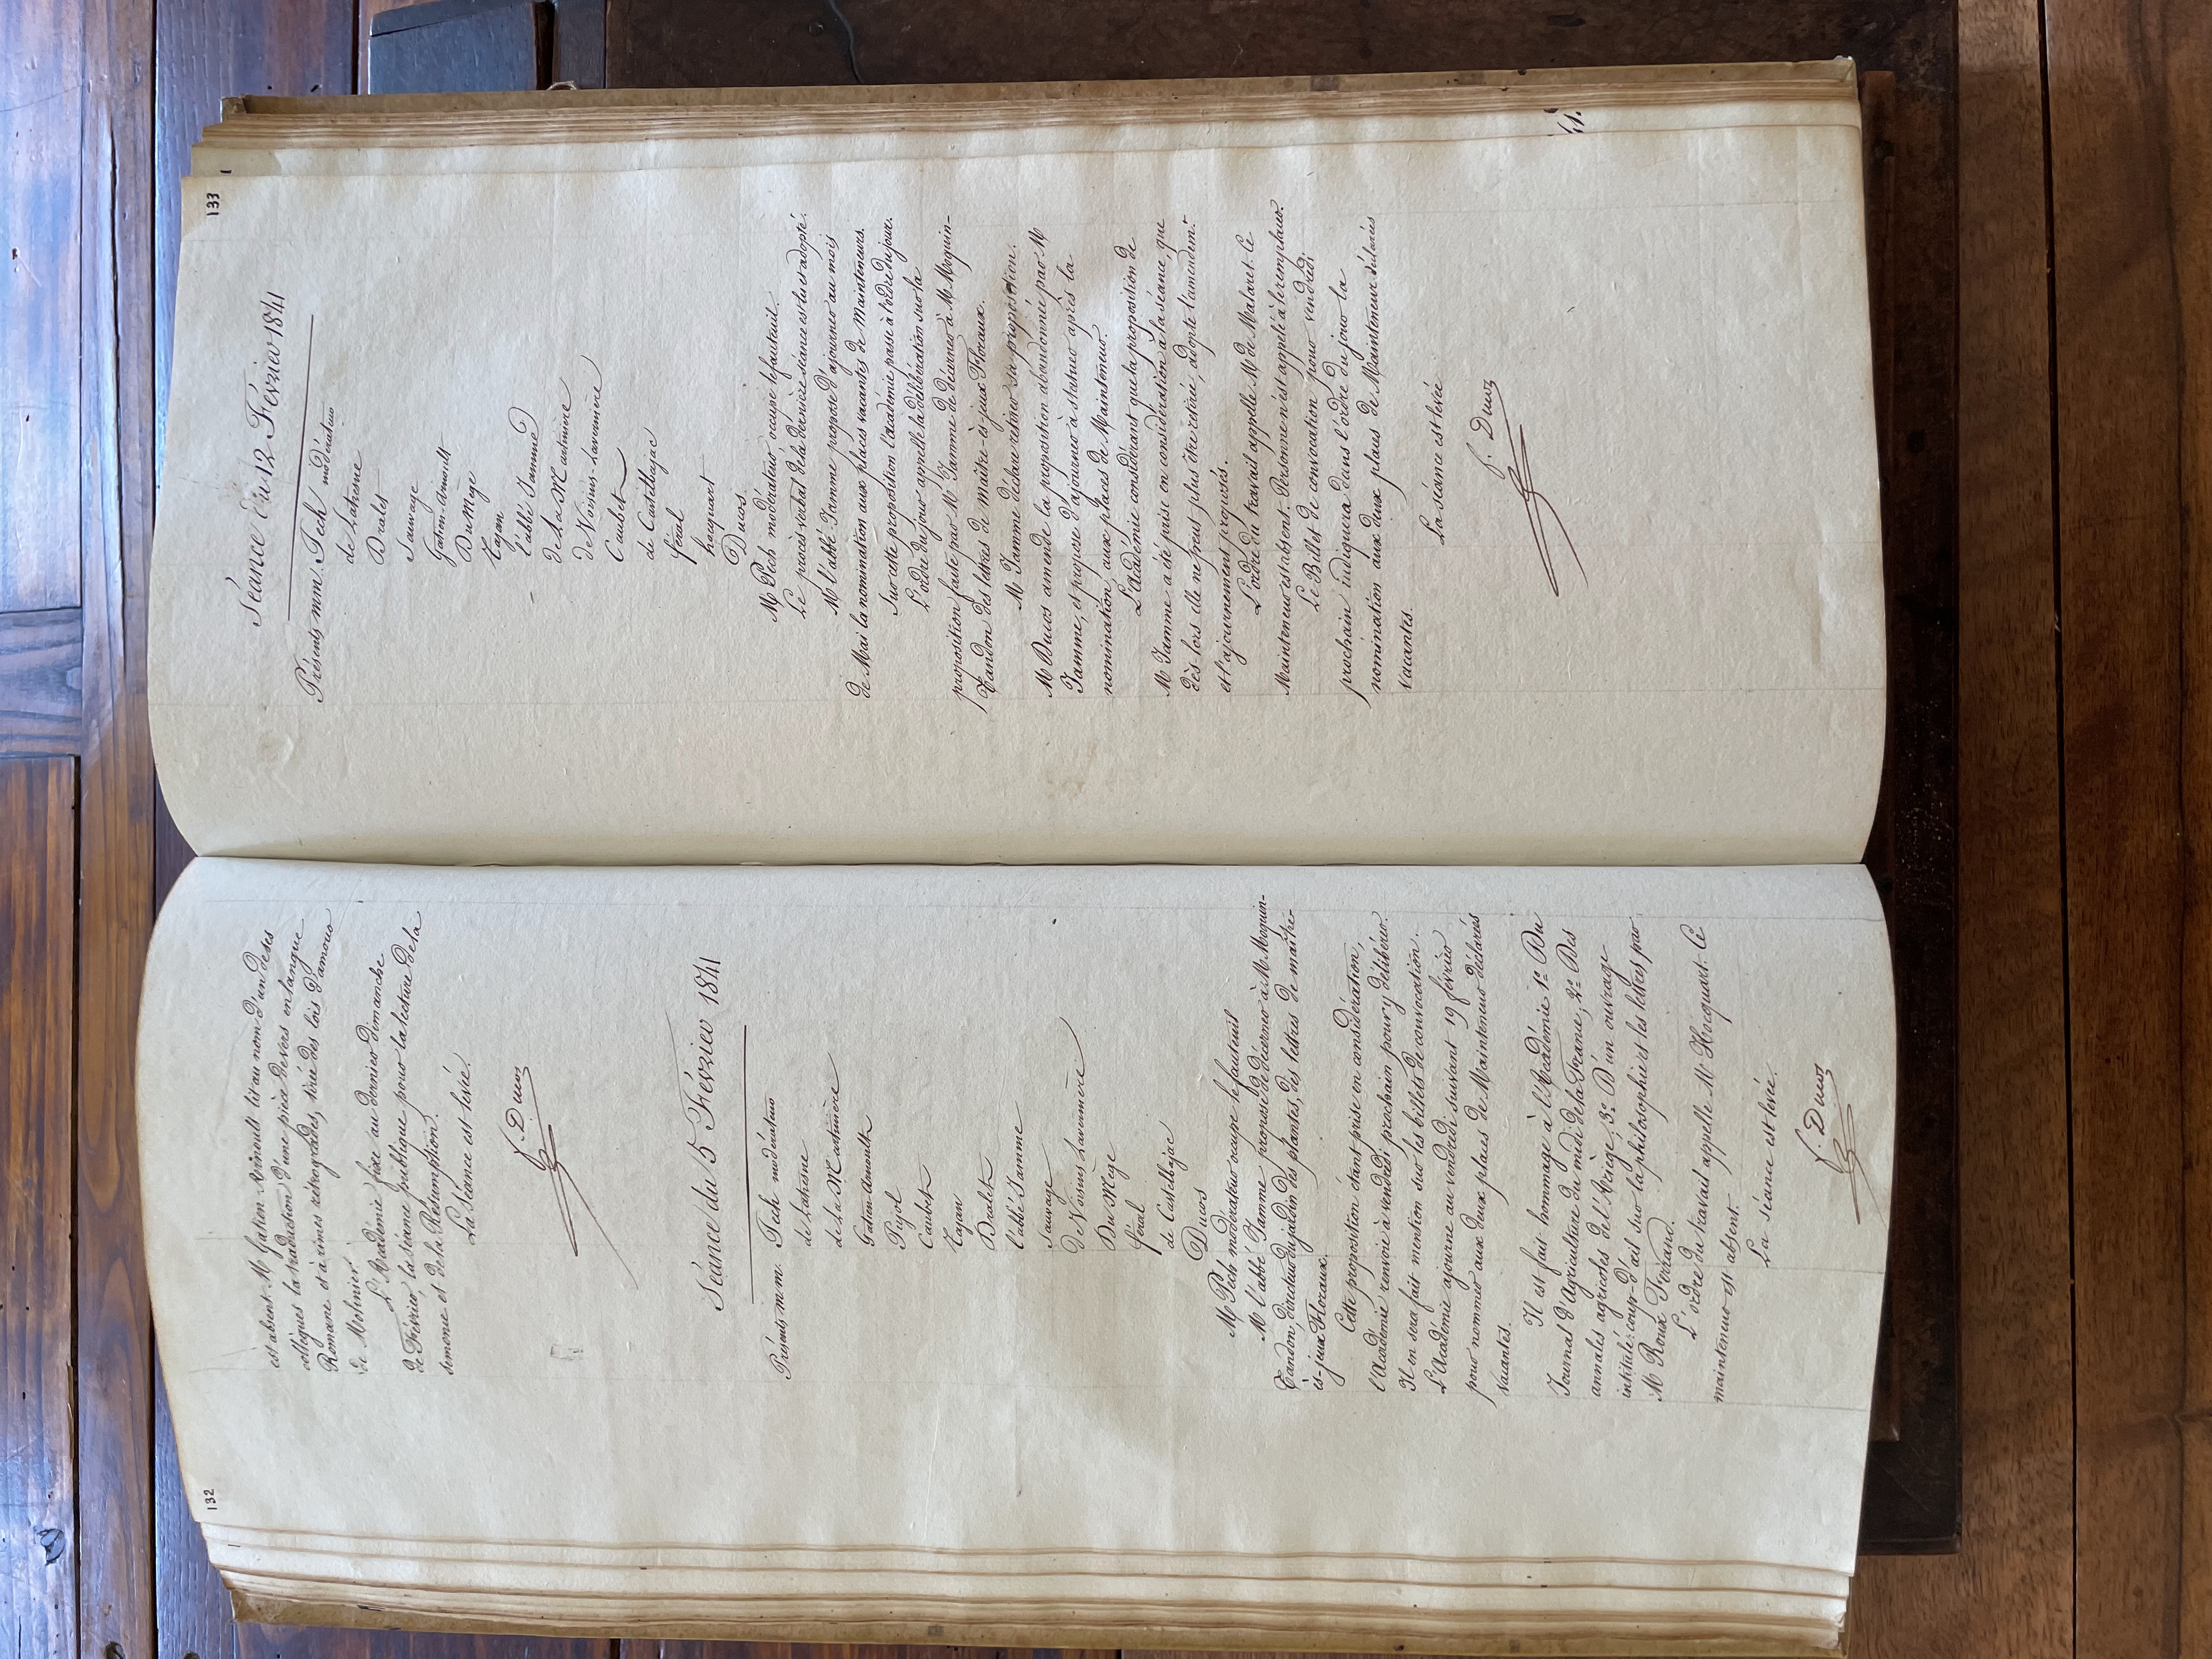 132
est absent. M Gatien-Arnoult lit au nom d'un de ses
collègues la traduction d'une pièce de vers en langue
Romane et à rimes rétrogrades, tirée des lois d'amour
de Molinier.
L'Académie fixe au dernier dimanche
de Février, la séance publique pour la lecture de la
semonce et de la Resumption.
La Séance est levée.
f. Ducos
Séance du 5 Février 1841
Présents m.m. Pech modérateur
de Latresne
de La Martinière
Gatien-Arnoult
Pujol
Caubet
Tajan
Dralet
l'abbé Jamme
Sauvage
De Voisins Lavernière
Du Mège
féral
de Castelbajac
Ducos
M Pech modérateur occupe le fauteuil
M l'abbé Jamme propose de décerner à M. Moquin-
Tandon, directeur du jardin des plantes, des lettres de maître-
ès-jeux Floraux.
Cette proposition étant prise en considération,
l'Académie renvoie à vendredi prochain pour y délibérer.
Il en sera fait mention sur les billets de convocation.
L'Académie ajourne au vendredi suivant 19 février
pour nommer aux deux places de Mainteneur déclarées
vacantes.
Il est fait hommage à l'Académie 1º Du
Journal d'Agriculture du midi de la France, 2º Des
annales agricoles de l'Ariège, 3º D'un ouvrage
intitulé: coup-d'œil sur la philosophie et les lettres par
M Roux Ferrand.
L'ordre du travail appelle Mr Hocquart. Ce
mainteneur est absent.
La séance est levée.
f. Ducos
133
Séance du 12 Février 1841
Présents mm. Pech modérateur
de Latresne
Dralet
Sauvage
Gatien-Arnoult
Du Mège
Tajan
l'abbé Jamme
de La Martinière
de Voisins-Lavernière
Caubet
de Castelbajac
féral
hocquart
Ducos
M Pech modérateur occupe le fauteuil.
Le procès verbal de la dernière séance est lu et adopté.
M l'abbé Jamme propose d'ajourner au mois
de Mai la nomination aux places vacantes de Mainteneurs.
Sur cette proposition l'académie passe à l'ordre du jour.
L'ordre du jour appelle la délibération sur la
proposition faite par M Jamme de décerner à M Moquin-
Tandon des lettres de maître-ès-jeux Floraux.
M Jamme déclare retirer sa proposition.
M Ducos amende la proposition abandonnée par M
Jamme, et propose d'ajourner à statuer après la
nomination aux places de Mainteneur.
L'Académie considérant que la proposition de
M Jamme a été prise en considération à la séance, que
dès lors elle ne peut plus être retirée, adopte l'amendemt
et l'ajournement proposés.
L'ordre du travail appelle M de Malaret. Ce
Mainteneur est absent. Personne n'est appelé à le remplacer.
Le Billet de convocation pour vendredi
prochain indiquera dans l'ordre du jour la
nomination aux deux places de Mainteneur déclarées
vacantes.
La séance est levée
f. Ducos